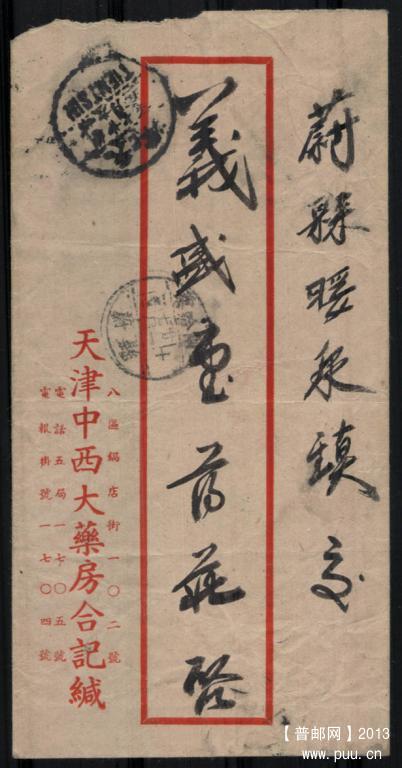 蔚縣暖泉鎮交
義盛重葯莊啓
八區鍋店街一〇二號
天津中西大藥房合記緘
電話五局一七〇五號
電報掛號一七〇四號
TIENTSIN
【普邮网】2013
www.puu.cn